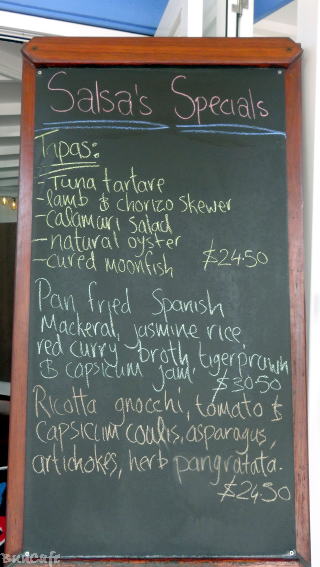 Salsa's Specials
Tapas:
-Tuna tartare
-lamb & chorizo skewer
-calamari salad
-natural oyster
-cured moonfish $24.50
Pan fried Spanish
Mackeral, jasmine rice,
red curry broth, tigerprawn
& capsicum jam. $30.50
Ricotta gnocchi, tomato &
capsicum coulis, asparagus,
artichokes, herb pangratata.
$24.50